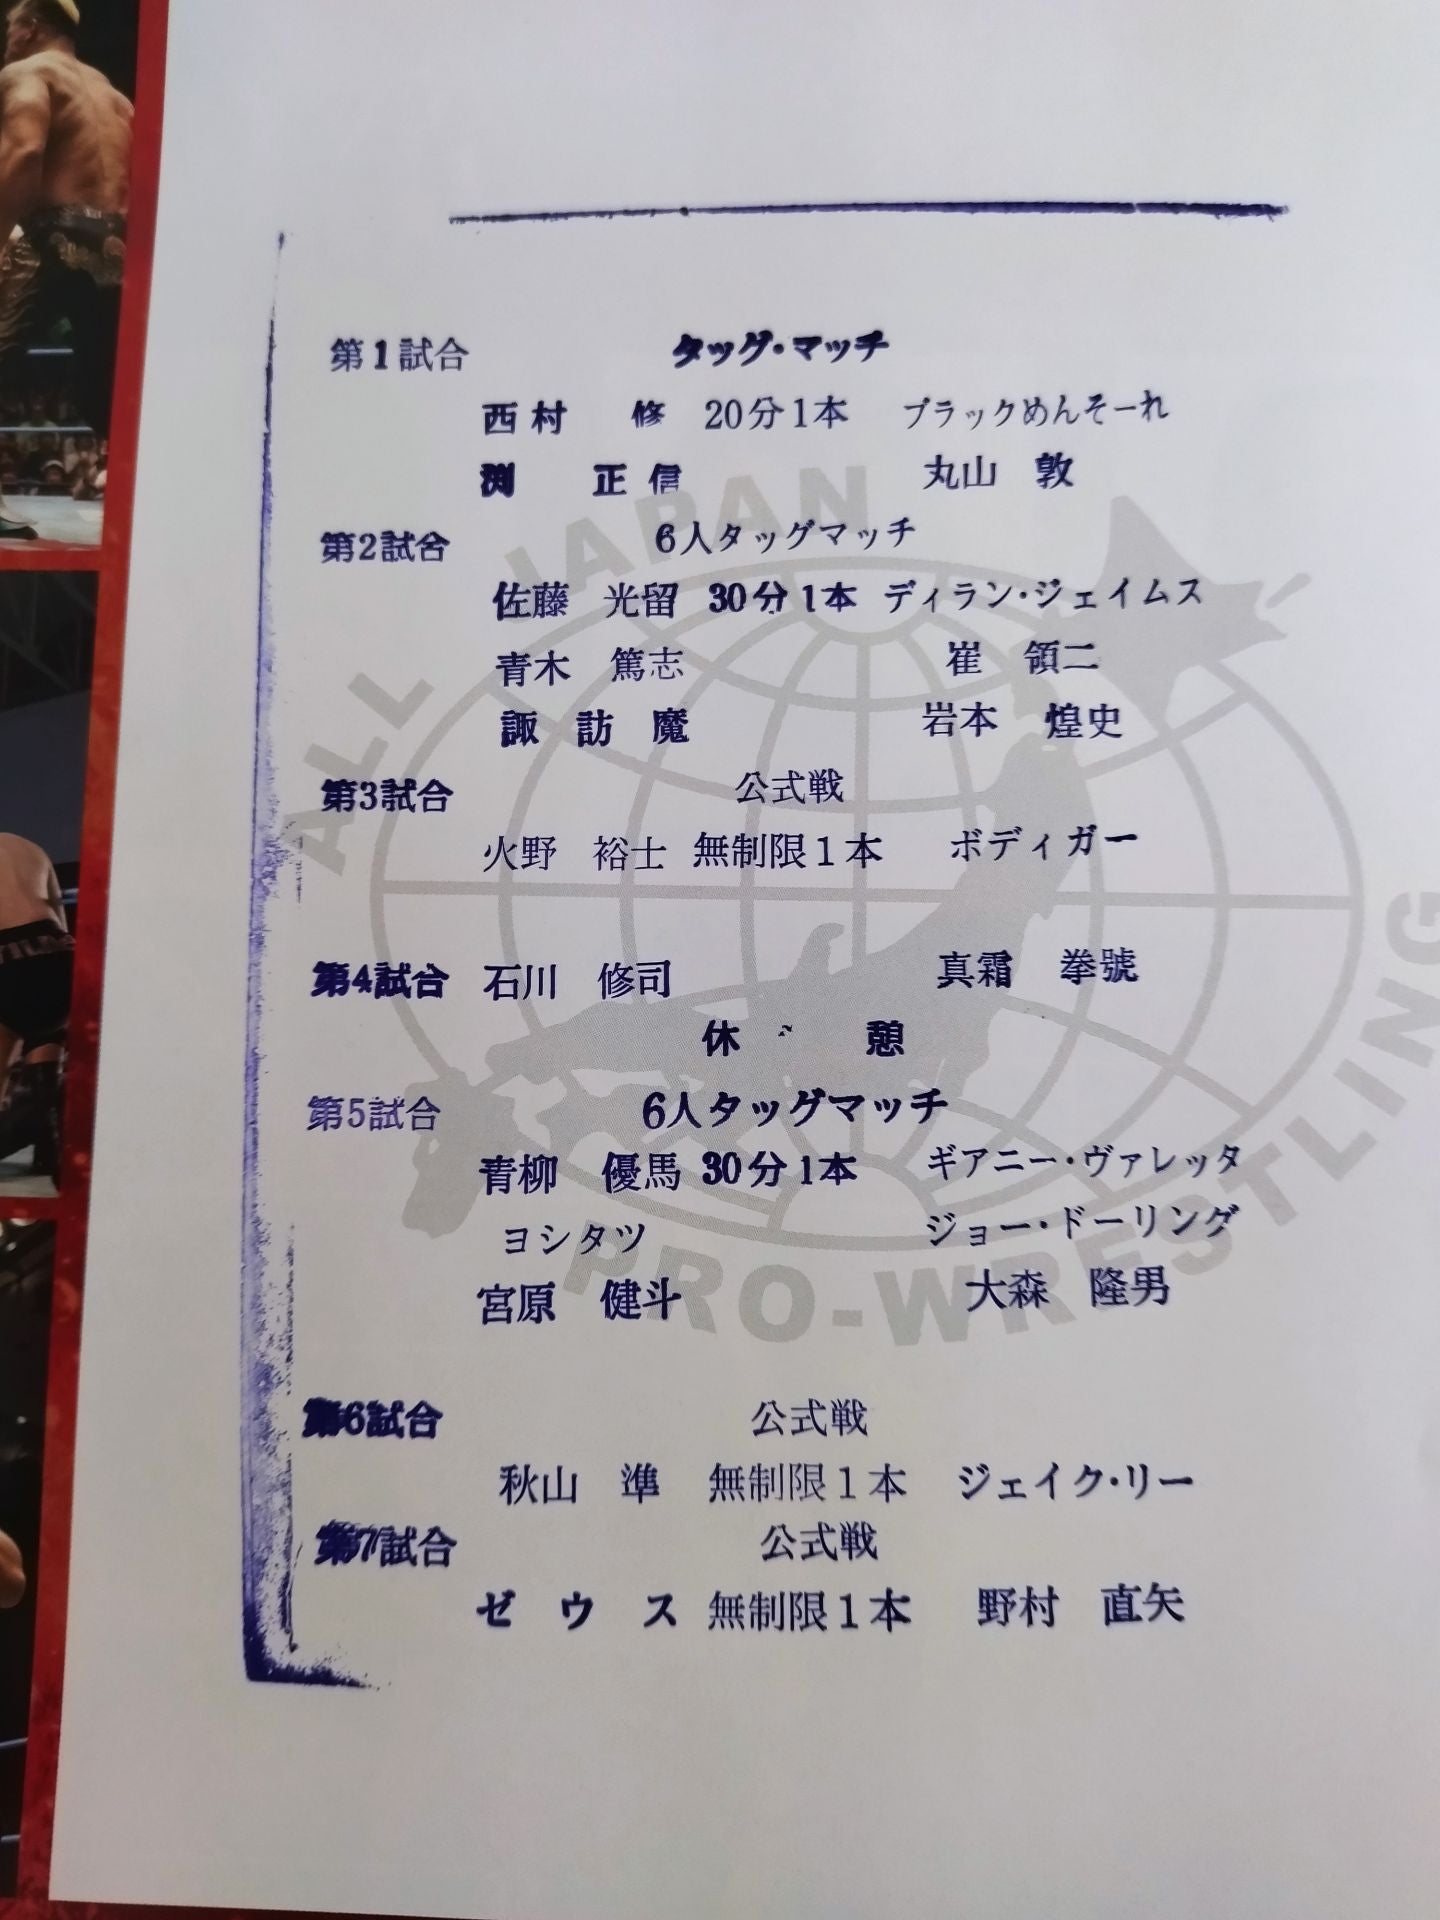 第1試合 タッグ・マッチ
西村 修 20分1本 ブラックめんそーれ
渕 正信 丸山 敦
第2試合 6人タッグマッチ
佐藤 光留 30分1本 ディラン・ジェイムス
青木 篤志 崔 領二
諏訪魔 岩本 煌史
第3試合 公式戦
火野 裕士 無制限1本 ボディガー
第4試合 石川 修司 真霜 拳號
休憩
第5試合 6人タッグマッチ
青柳 優馬 30分1本 ギアニー・ヴァレッタ
ヨシタツ ジョー・ドーリング
宮原 健斗 大森 隆男
第6試合 公式戦
秋山 準 無制限1本 ジェイク・リー
第7試合 公式戦
ゼウス 無制限1本 野村 直矢
ALL JAPAN
PRO-WRESTLING